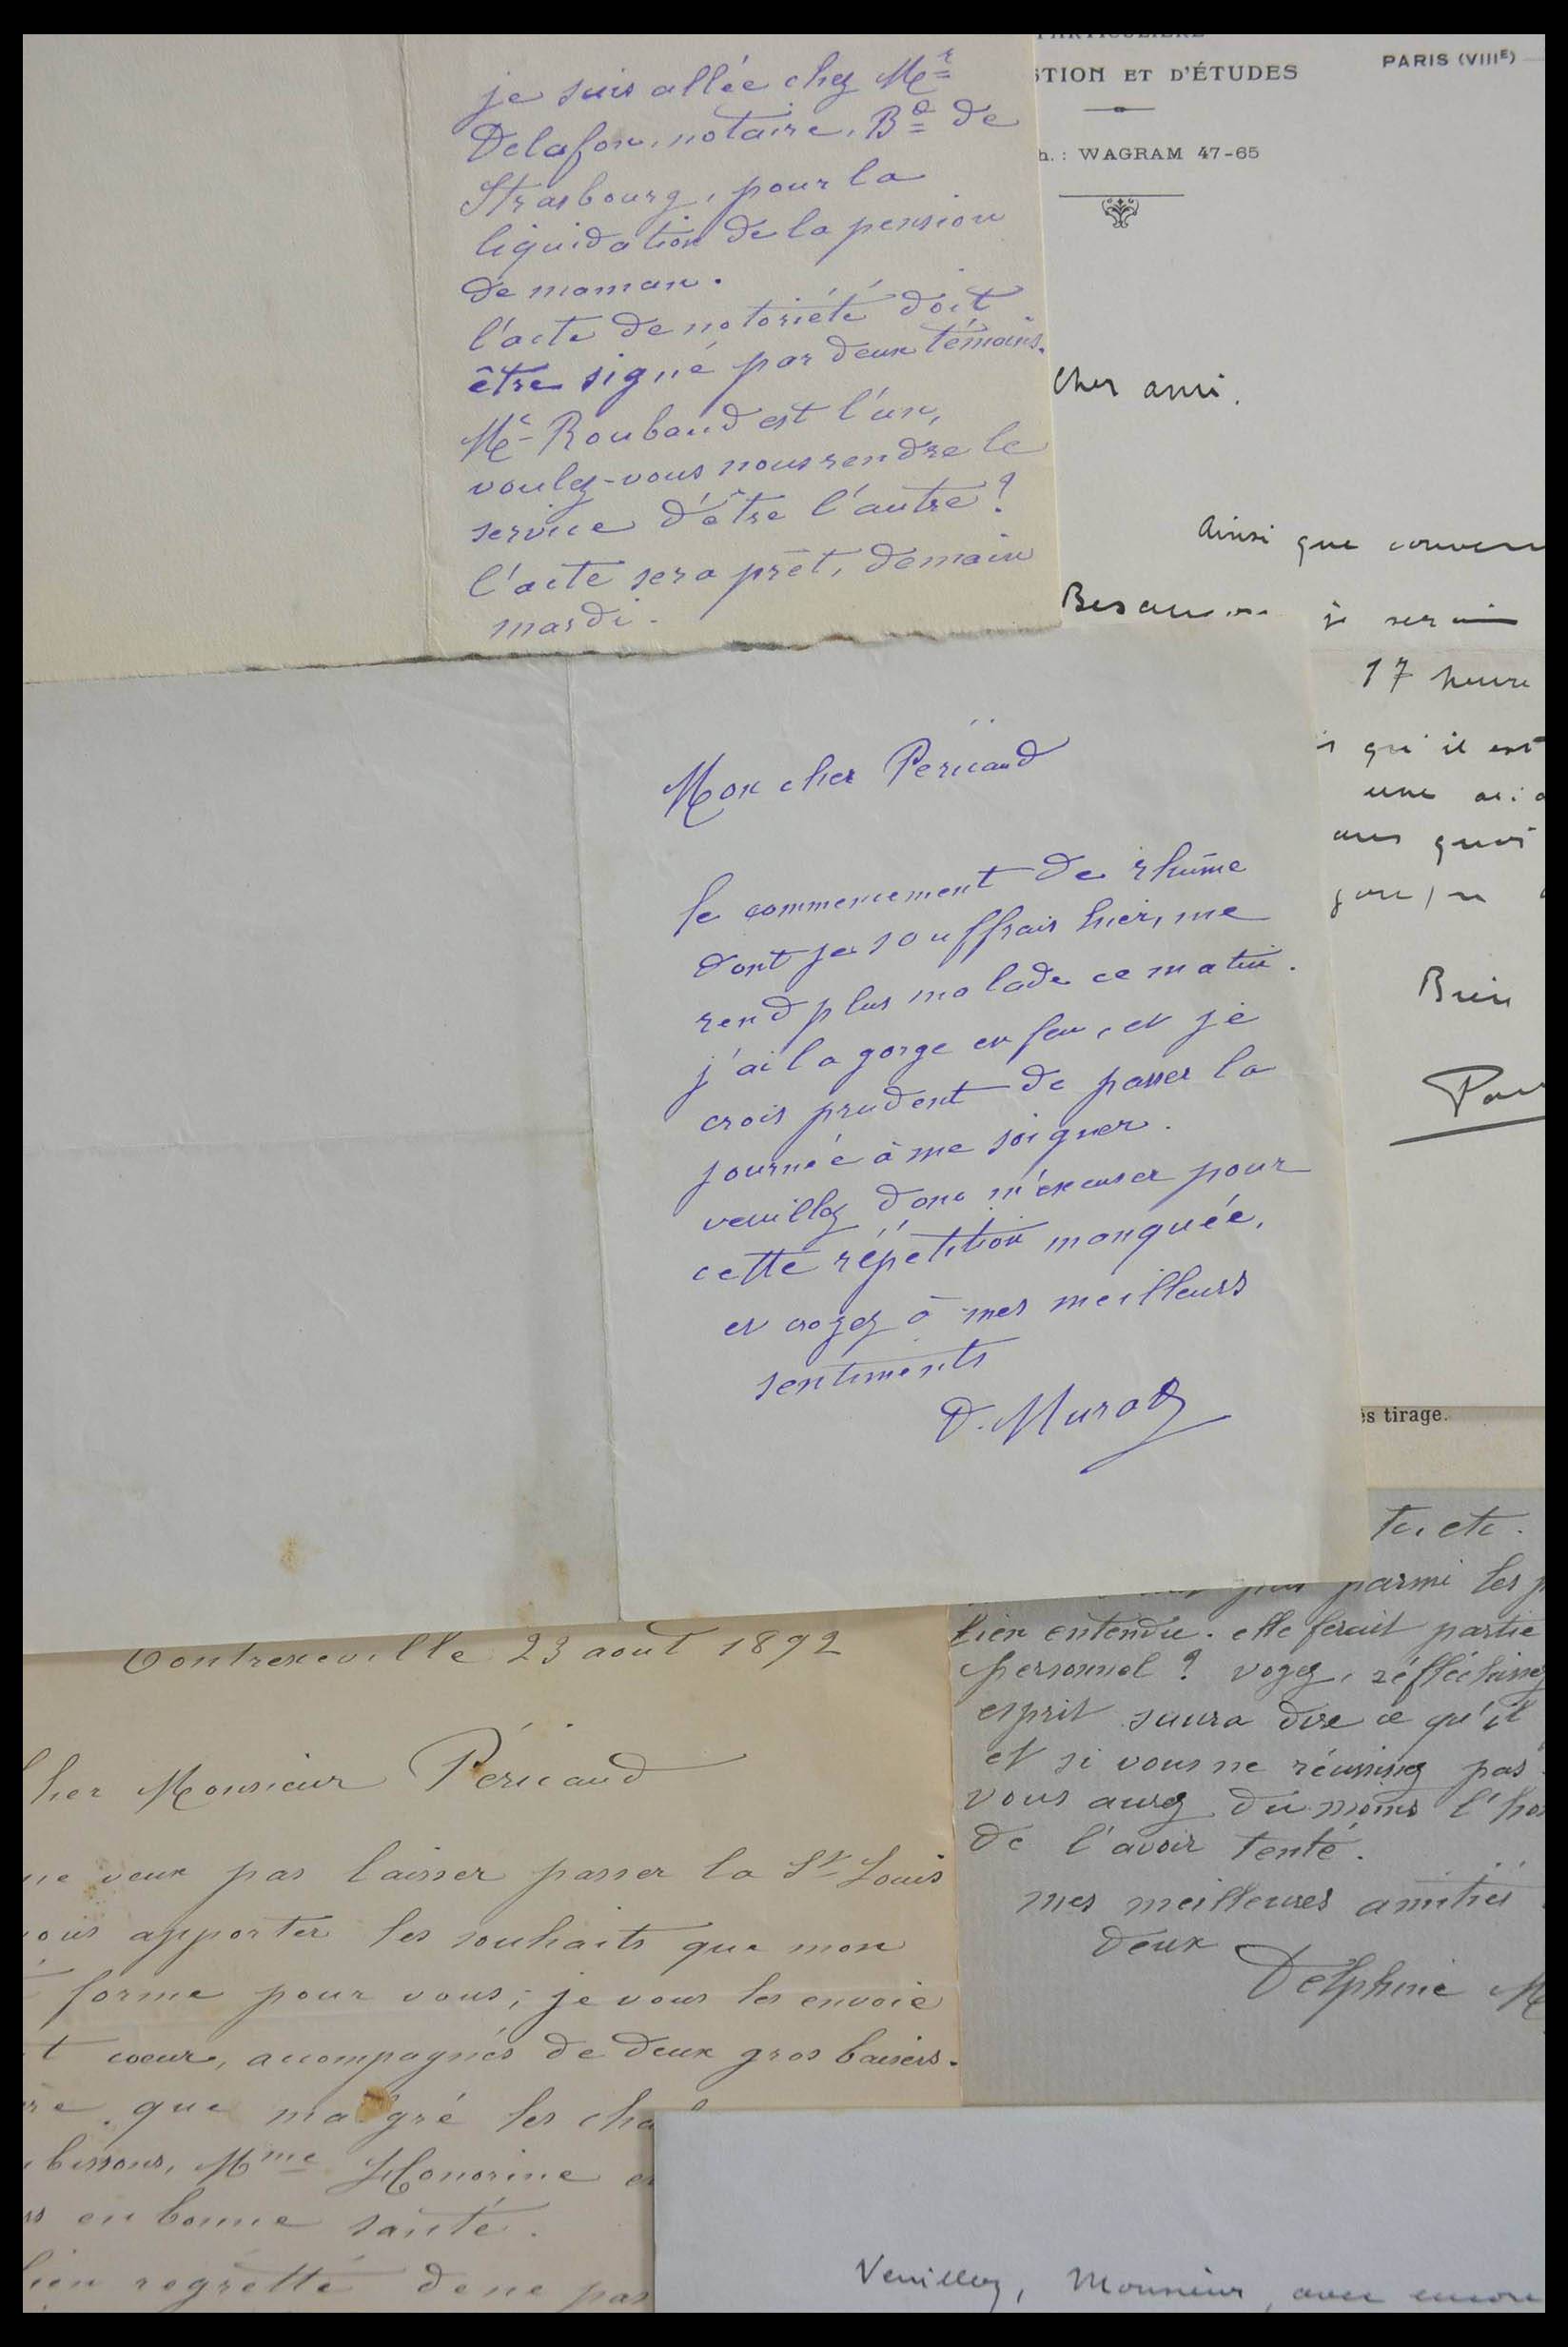 je suis allée chez Me
Delafon, notaire, Bd de
Strasbourg, pour la
liquidation de la pension
de maman.
l'acte de notoriété doit
être signé par deux témoins.
Mr Roubaud est l'un,
voulez-vous nous rendre le
service d'être l'autre ?
l'acte sera prêt, demain
mardi.
PARTICULIÈRE
STION ET D'ÉTUDES
PARIS (VIIIE)
h. : WAGRAM 47-65
Cher ami.
Ainsi que conven
je serai
17 heure
qu'il est
une
quoi
Bien
Pau
Mon cher Péricaud
le commencement de rhûme
dont je souffrais hier, me
rend plus malade ce matin.
j'ai la gorge en feu, et je
crois prudent de passer la
journée à me soigner.
veuillez donc m'excuser pour
cette répétition manquée,
et croyez à mes meilleurs
sentiments
D. Murat
ès tirage.
etc.
parmi les p
bien entendu. elle ferait partie
personnel ? voyez, réfléchissez
esprit saura dire ce qu'il
et si vous ne réussissez pas
vous aurez du moins l'hon
de l'avoir tenté.
mes meilleures amitiés
deux
Delphine M
Contrexeville 23 aout 1892
her Monsieur Péricaud
ne veux pas laisser passer la St Louis
vous apporter les souhaits que mon
forme pour vous ; je vous les envoie
t coeur, accompagnés de deux gros baisers.
re que malgré les cha
bissons, Mme Honorine et
s en bonne santé.
ien regretté de ne pas
Veuillez, Monsieur, avec encore